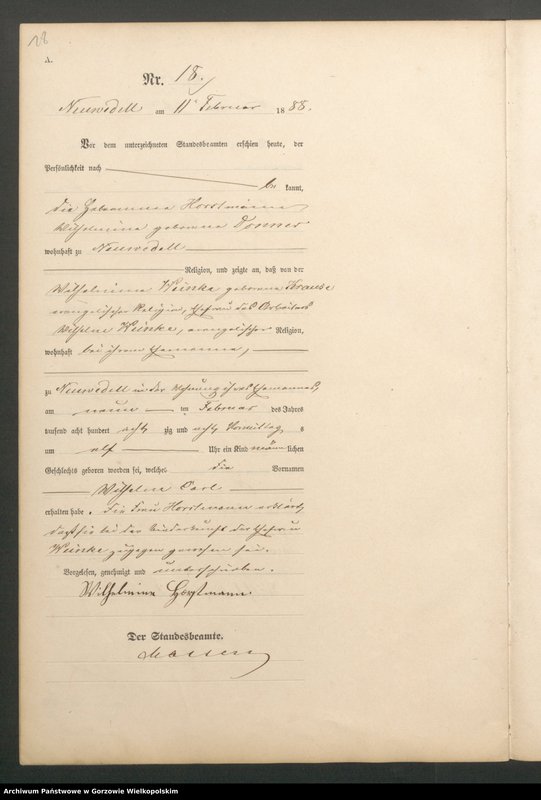 18
A.
Nr. 18.
Neuwedell am 11 Februar 1888.
Vor dem unterzeichneten Standesbeamten erschien heute, der
Persönlichkeit nach
be kannt,
die Hebamme Horstmann
Wilhelmine geborene Donner
wohnhaft zu Neuwedell
Religion, und zeigte an, daß von der
Wilhelmine Weinke geborene Krause
evangelischer Religion, Ehefrau des Arbeiters
Wilhelm Weinke, evangelischer Religion,
wohnhaft bei ihrem Ehemanne,
zu Neuwedell in der Wohnung ihres Ehemannes,
am neun ten Februar des Jahres
tausend acht hundert acht zig und acht Vormittag s
um elf Uhr ein Kind männ lichen
Geschlechts geboren worden sei, welches die Vornamen
Wilhelm Carl
erhalten habe. Die Frau Horstmann erklärt,
daß sie bei der Niederkunft der Ehefrau
Weinke zugegen gewesen sei.
Vorgelesen, genehmigt und unterschrieben.
Wilhelmine Horstmann.
Der Standesbeamte.
Archiwum Państwowe w Gorzowie Wielkopolskim